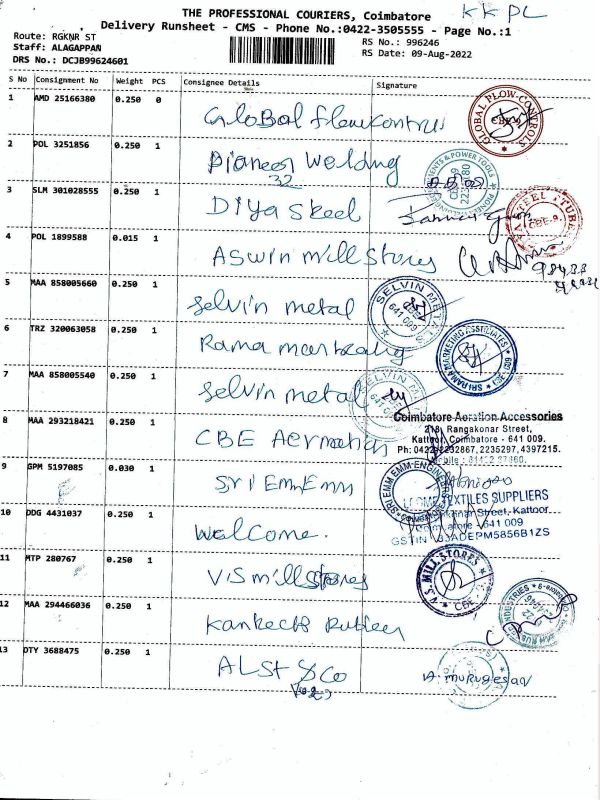 THE PROFESSIONAL COURIERS, Coimbatore KKPL
Delivery Runsheet - CMS - Phone No.:0422-3505555 - Page No.:1
Route: RGKNR ST
Staff: ALAGAPPAN
DRS No.: DCJB99624601
RS No.: 996246
RS Date: 09-Aug-2022
S No Consignment No Weight PCS Consignee Details Signature
1 AMD 25166380 0.250 0 Global flowcontrols GLOBAL FLOW-CONTROLS
2 POL 3251856 0.250 1 Pioneer Welding
32
3 SLM 301028555 0.250 1 Diya Steel
4 POL 1899588 0.015 1 ASwin mill Stores
5 MAA 858005660 0.250 1 Selvin metal SELVIN METALS 641 009
6 TRZ 320063058 0.250 1 Rama marketing SRI RAMA MARKETING ASSOCIATES
7 MAA 858005540 0.250 1 Selvin metal SELVIN METALS
Coimbatore Aeration Accessories
218, Rangakonar Street,
Kattoor, Coimbatore - 641 009.
Ph: 0422-2232867, 2235297, 4397215.
8 MAA 293218421 0.250 1 CBE Aeration
9 GPM 5197085 0.030 1 Sri Emm Emm SRI EMM EMM ENGINEERING
TEXTILES SUPPLIERS
Street, Kattoor,
641 009
10 DDG 4431037 0.250 1 Welcome.
11 MTP 280767 0.250 1 V.S mill Stores V.S. MILL STORES CBE
12 MAA 294466036 0.250 1 Rubber
13 DTY 3688475 0.250 1 ALSt & Co A. murugesan